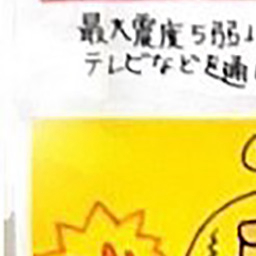 最大震度5弱以
テレビなどを通